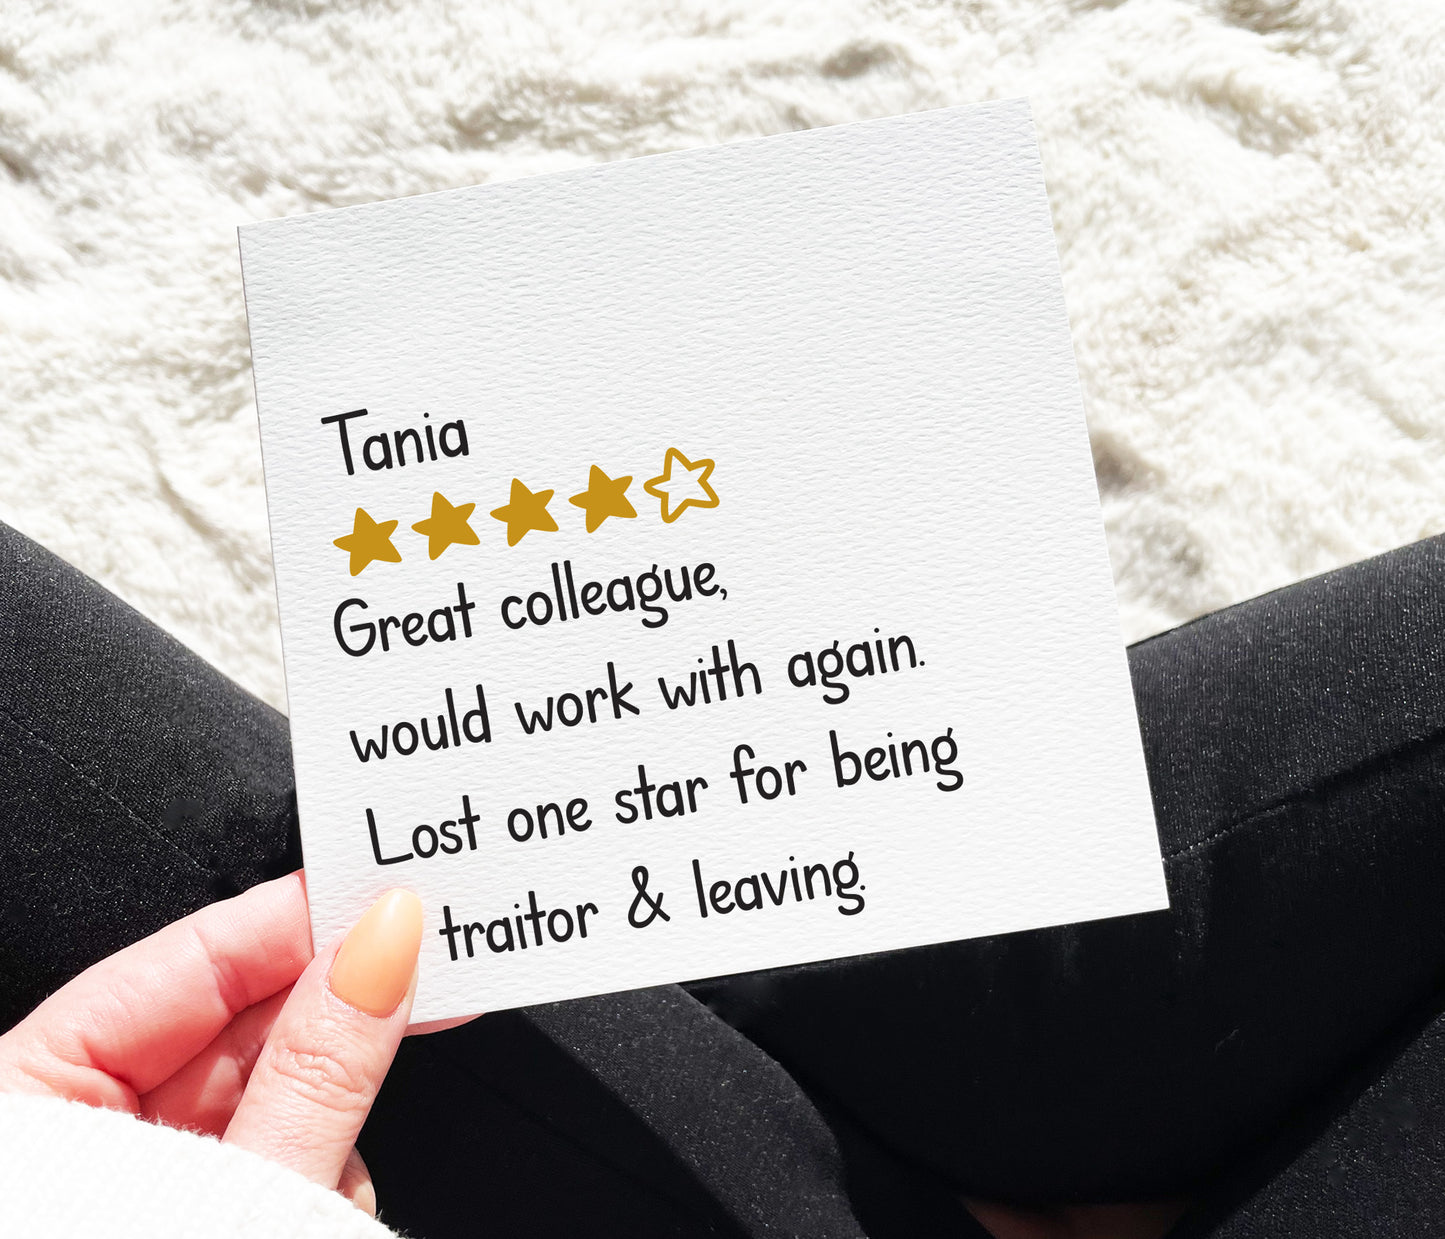 Tania
Great colleague,
would work with again.
Lost one star for being
traitor & leaving.